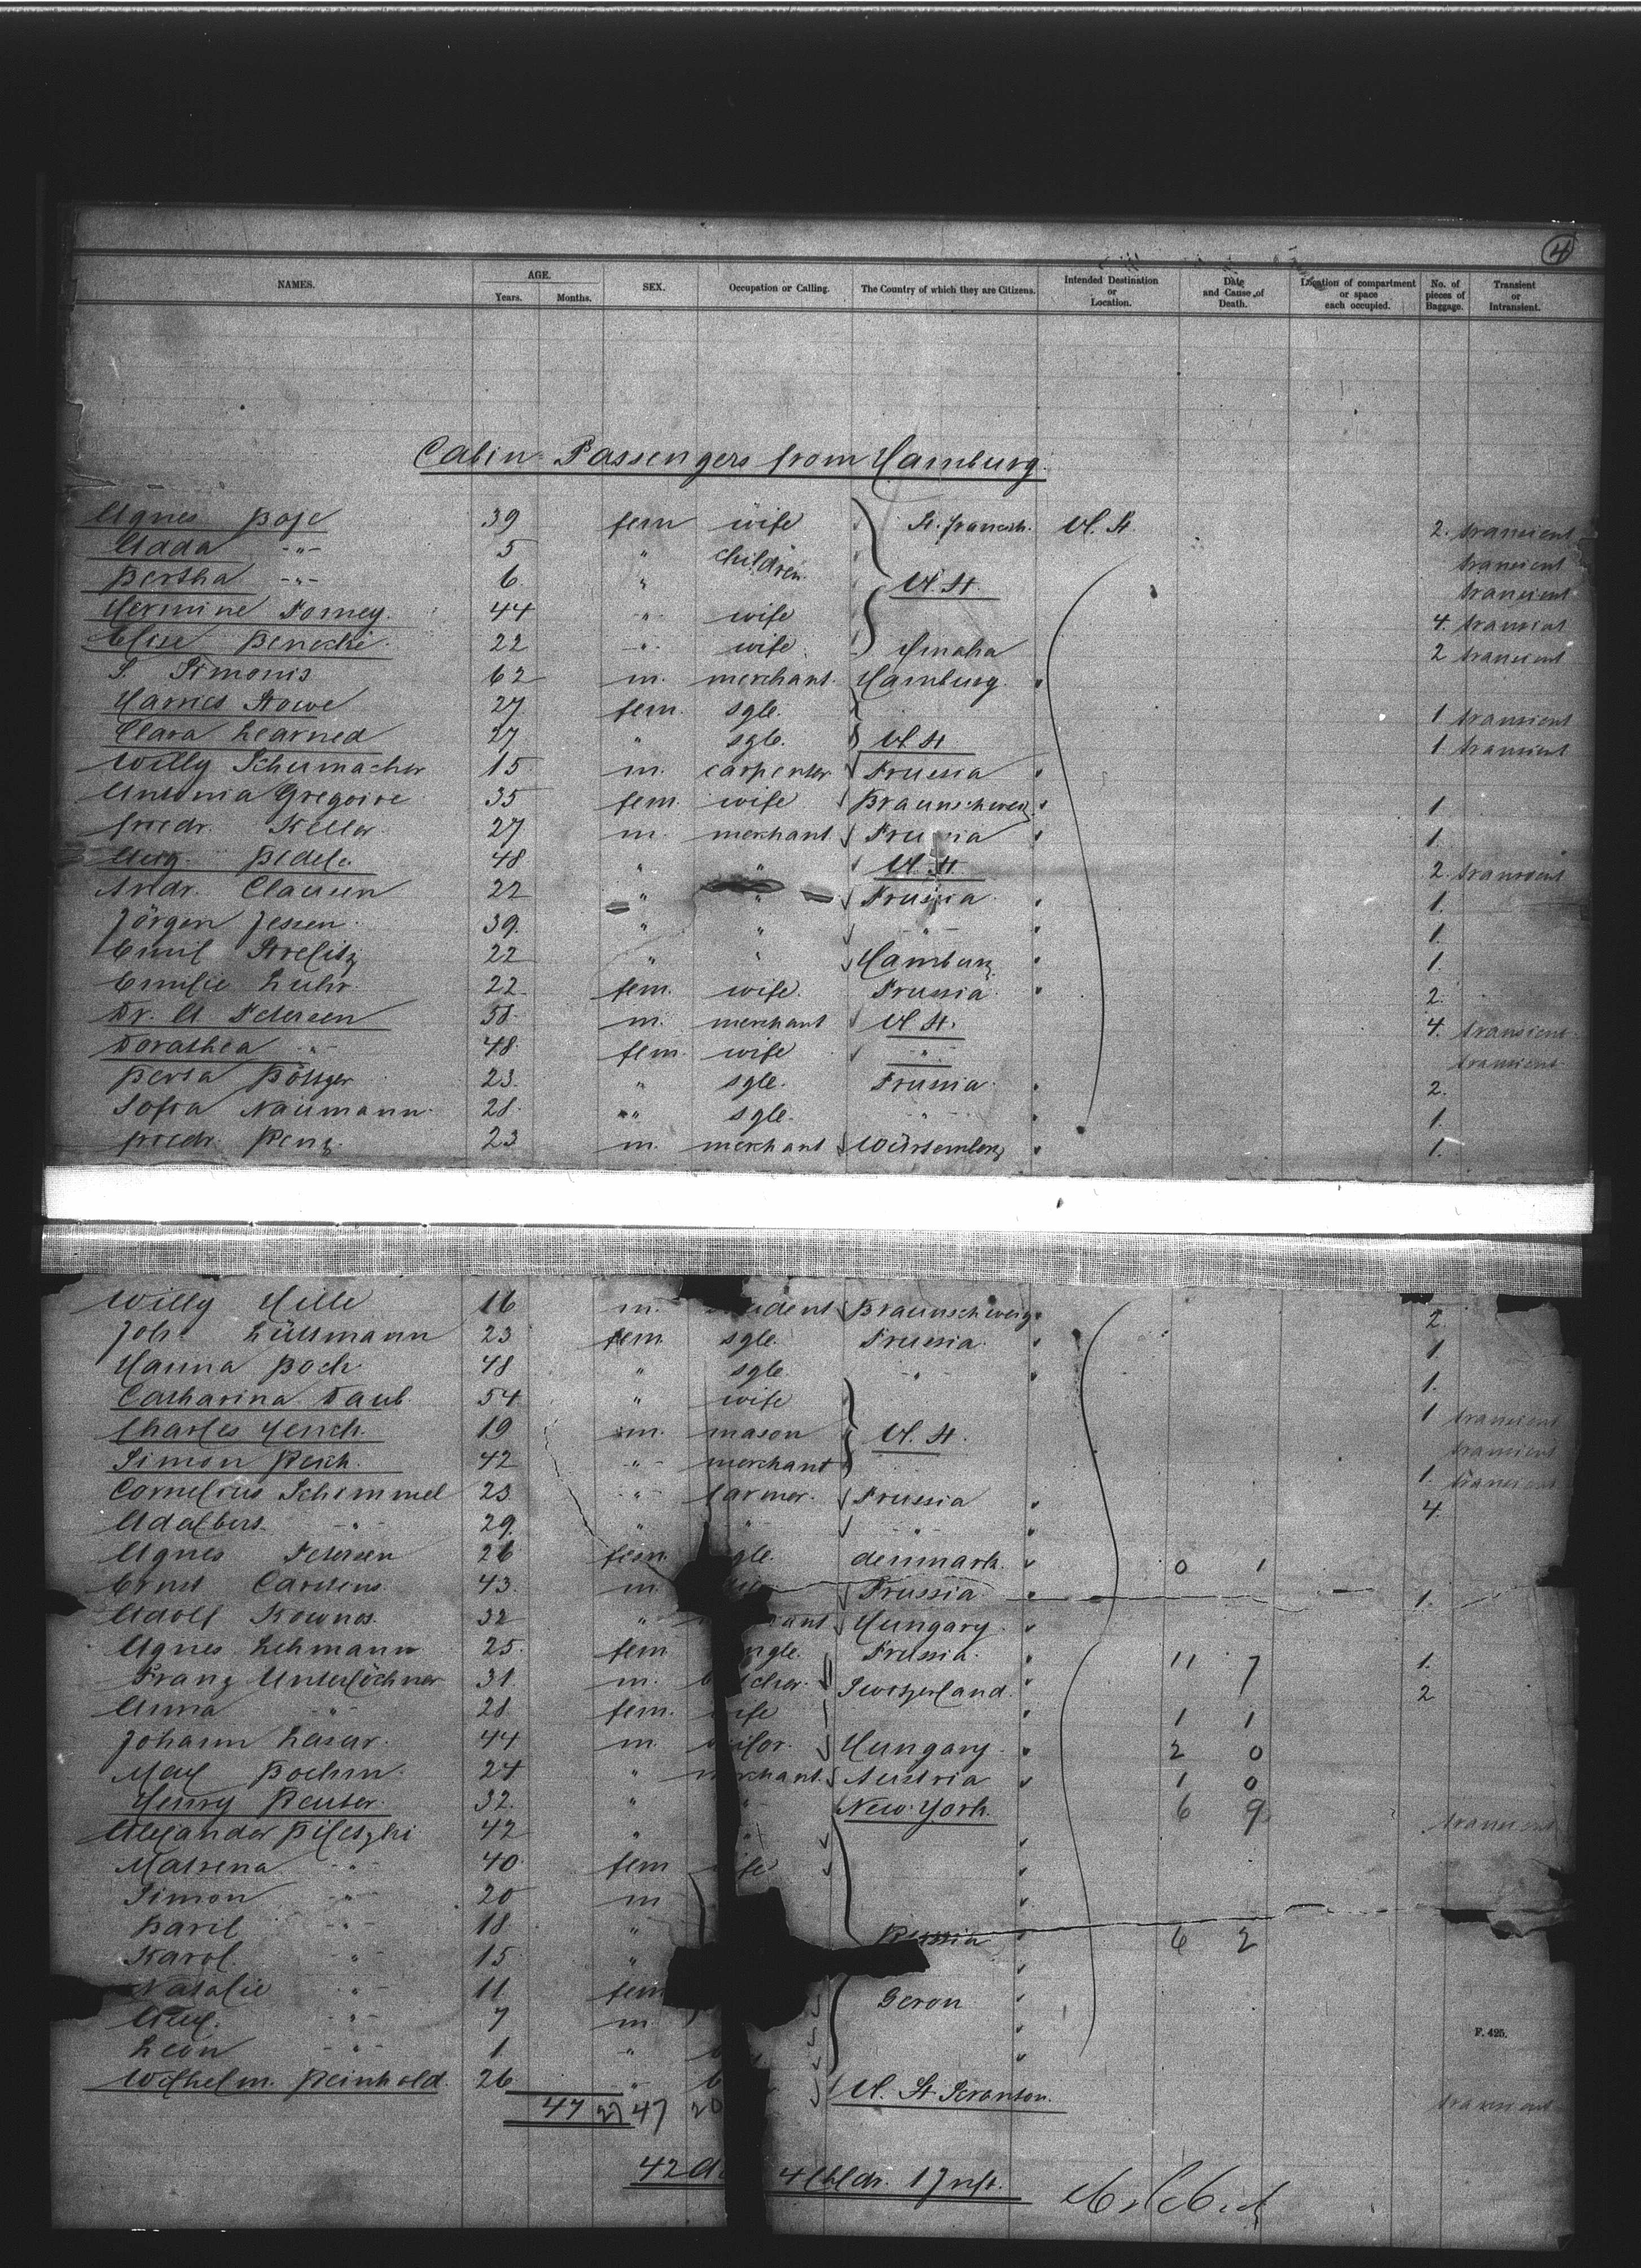 4
NAMES. AGE. Years. Months. SEX. Occupation or Calling. The Country of which they are Citizens. Intended Destination or Location. Date and Cause of Death. Location of compartment or space each occupied. No. of pieces of Baggage. Transient or Intransient.
Cabin Passengers from Hamburg.
Agnes Boje 39 fem wife St. francisk. U. St. 2. transient
Adda -"- 5 " children transient
Bertha -"- 6. " U. St. transient
Hermine Forney. 44 -"- wife 4. transient
Elise 22 -"- wife. Omaha 2 transient
S. Simonis 62 m. merchant. Hamburg.
Harriet Stowe 27 fem. sgle. 1. transient
Clara Learned 27 " sgle. U. St. 1. transient
Willy Schumacher 15 m. carpenter Prussia
Antonia Gregoire 35 fem. wife Braunschweig 1.
friedr. Keller 27 m. merchant. Prussia 1.
Aug. 48 " " U. St. 2. transient
Andr. Clausen 22 " " Prussia. 1.
Jörgen Jessen 39. " " -"- 1.
Emil Strelitz 22 " " Hamburg 1.
Emilie Luhr. 22 fem. wife. Prussia 2.
Dr. A. Petersen 58 m. merchant U. St. 4. transient
Dorathea -"- 48. fem. wife -"- transient
Berta Böttger 23. " sgle. Prussia. 2.
Sofia Naumann. 28. " sgle. -"- 1.
friedr. Renz. 23 m. merchant Würtemberg 1.
Willy Hille 16 m. udent Braunschweig 2.
Joh. Lüttmann 23 fem. sgle. Prussia. 1.
Hanna Bock 48 " sgle. -"- 1.
Catharina Daub. 54. " wife 1 transient
Charles 19 m. mason U. St. transient
Simon Reich. 42 -"- merchant 1. transient
Cornelius Schimmel 23 -"- farmer. Prussia 4.
Adalbert -"- 29. " -"- -"-
Agnes Petersen 26 fem. gle. denmark. 0 1
Ernst Carstens. 43. m. Prussia 1.
Adolf 32 " ant Hungary.
Agnes Lehmann 25. fem ngle. Prussia. 11 7 1.
Franz Unterlöchner 31 m. cher. Switzerland. 2
Anna -"- 28 fem. ife 1 1
Johann Lasar. 44 m. Hungary. 2 0
Max Boehm. 24 " rchant. Austria 1 0
Henry Reuter. 32. " -"- New-York. 6 9 transient
Alexander 42 " "
Matrena -"- 40 fem ife
Simon -"- 20 m
Baril -"- 18. "
Karol. " 15. " Russia 6 2
Natalie -"- 11. fem
-"- 7 m
Leon -"- 1. "
Wilhelm. Reinhold. 26 " U. St Scranton. transient
F. 425.
47 27 47 20
42 4 Chldr. 1 Inft.